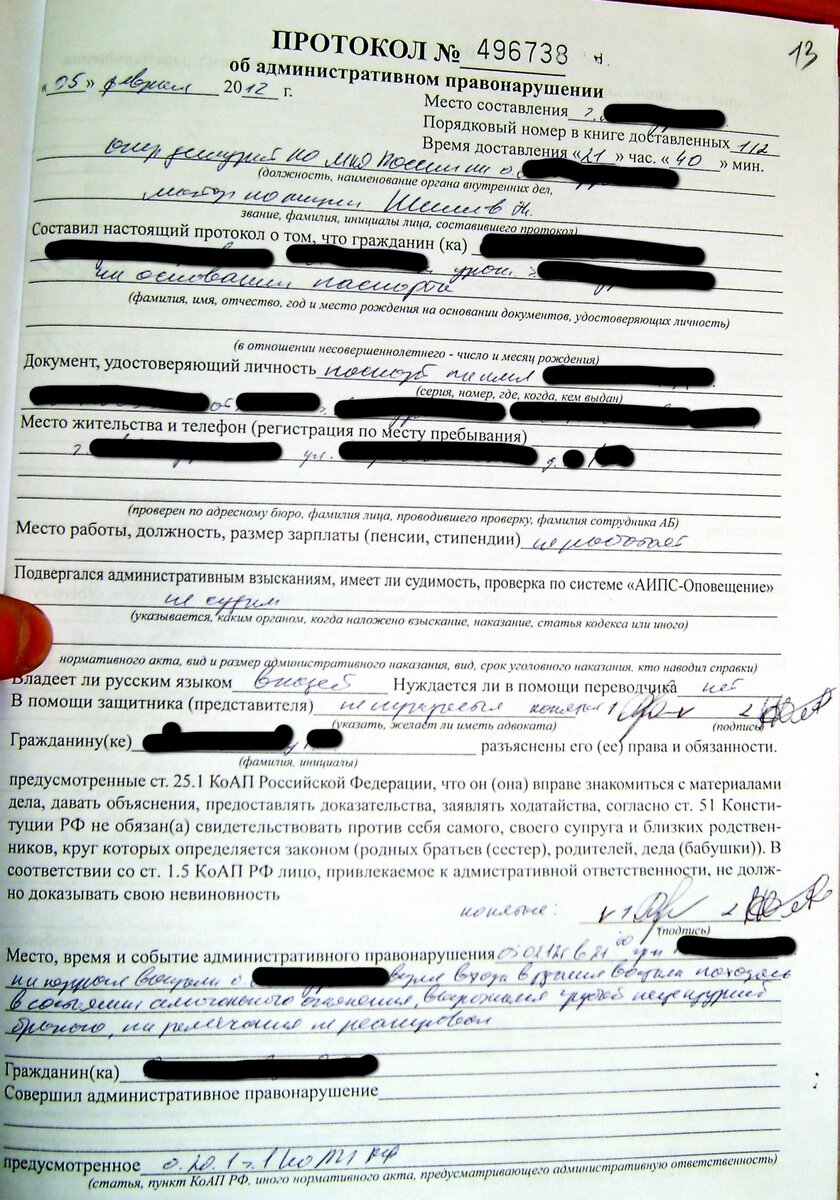 13
ПРОТОКОЛ № 496738
об административном правонарушении
«05» февраля 2012 г.
Место составления г.
Порядковый номер в книге доставленных 112
Время доставления «21» час. «40» мин.
опер дежурный МВД России по о.
(должность, наименование органа внутренних дел,
майор полиции
звание, фамилия, инициалы лица, составившего протокол)
Составил настоящий протокол о том, что гражданин (ка)
урож. г.
на основании паспорта
(фамилия, имя, отчество, год и место рождения на основании документов, удостоверяющих личность)
(в отношении несовершеннолетнего - число и месяц рождения)
Документ, удостоверяющий личность паспорт на имя
(серия, номер, где, когда, кем выдан)
от
Место жительства и телефон (регистрация по месту пребывания)
г. ул. д.
(проверен по адресному бюро, фамилия лица, проводившего проверку, фамилия сотрудника АБ)
Место работы, должность, размер зарплаты (пенсии, стипендии) не работает
Подвергался административным взысканиям, имеет ли судимость, проверка по системе «АИПС-Оповещение»
не судим
(указывается, каким органом, когда наложено взыскание, наказание, статья кодекса или иного)
нормативного акта, вид и размер административного наказания, вид, срок уголовного наказания, кто наводил справки)
Владеет ли русским языком владеет Нуждается ли в помощи переводчика нет
В помощи защитника (представителя) не нуждается понятые 1 2
(указать, желает ли иметь адвоката) (подпись)
Гражданину(ке) разъяснены его (ее) права и обязанности.
(фамилия, инициалы)
предусмотренные ст. 25.1 КоАП Российской Федерации, что он (она) вправе знакомиться с материалами
дела, давать объяснения, предоставлять доказательства, заявлять ходатайства, согласно ст. 51 Консти-
туции РФ не обязан(а) свидетельствовать против себя самого, своего супруга и близких родствен-
ников, круг которых определяется законом (родных братьев (сестер), родителей, деда (бабушки)). В
соответствии со ст. 1.5 КоАП РФ лицо, привлекаемое к адмистративной ответственности, не долж-
но доказывать свою невиновность
понятые: 1 2
(подпись)
Место, время и событие административного правонарушения 05.02.12г. в 21 00 гр-н
на ж/д вокзала о. возле входа в здание вокзала находясь
в состоянии алкогольного опьянения, выражался грубой нецензурной
бранью, на замечания не реагировал
Гражданин(ка)
Совершил административное правонарушение
предусмотренное ст. 20.1 ч. 1 КоАП РФ
(статья, пункт КоАП РФ, иного нормативного акта, предусматривающего административную ответственность)